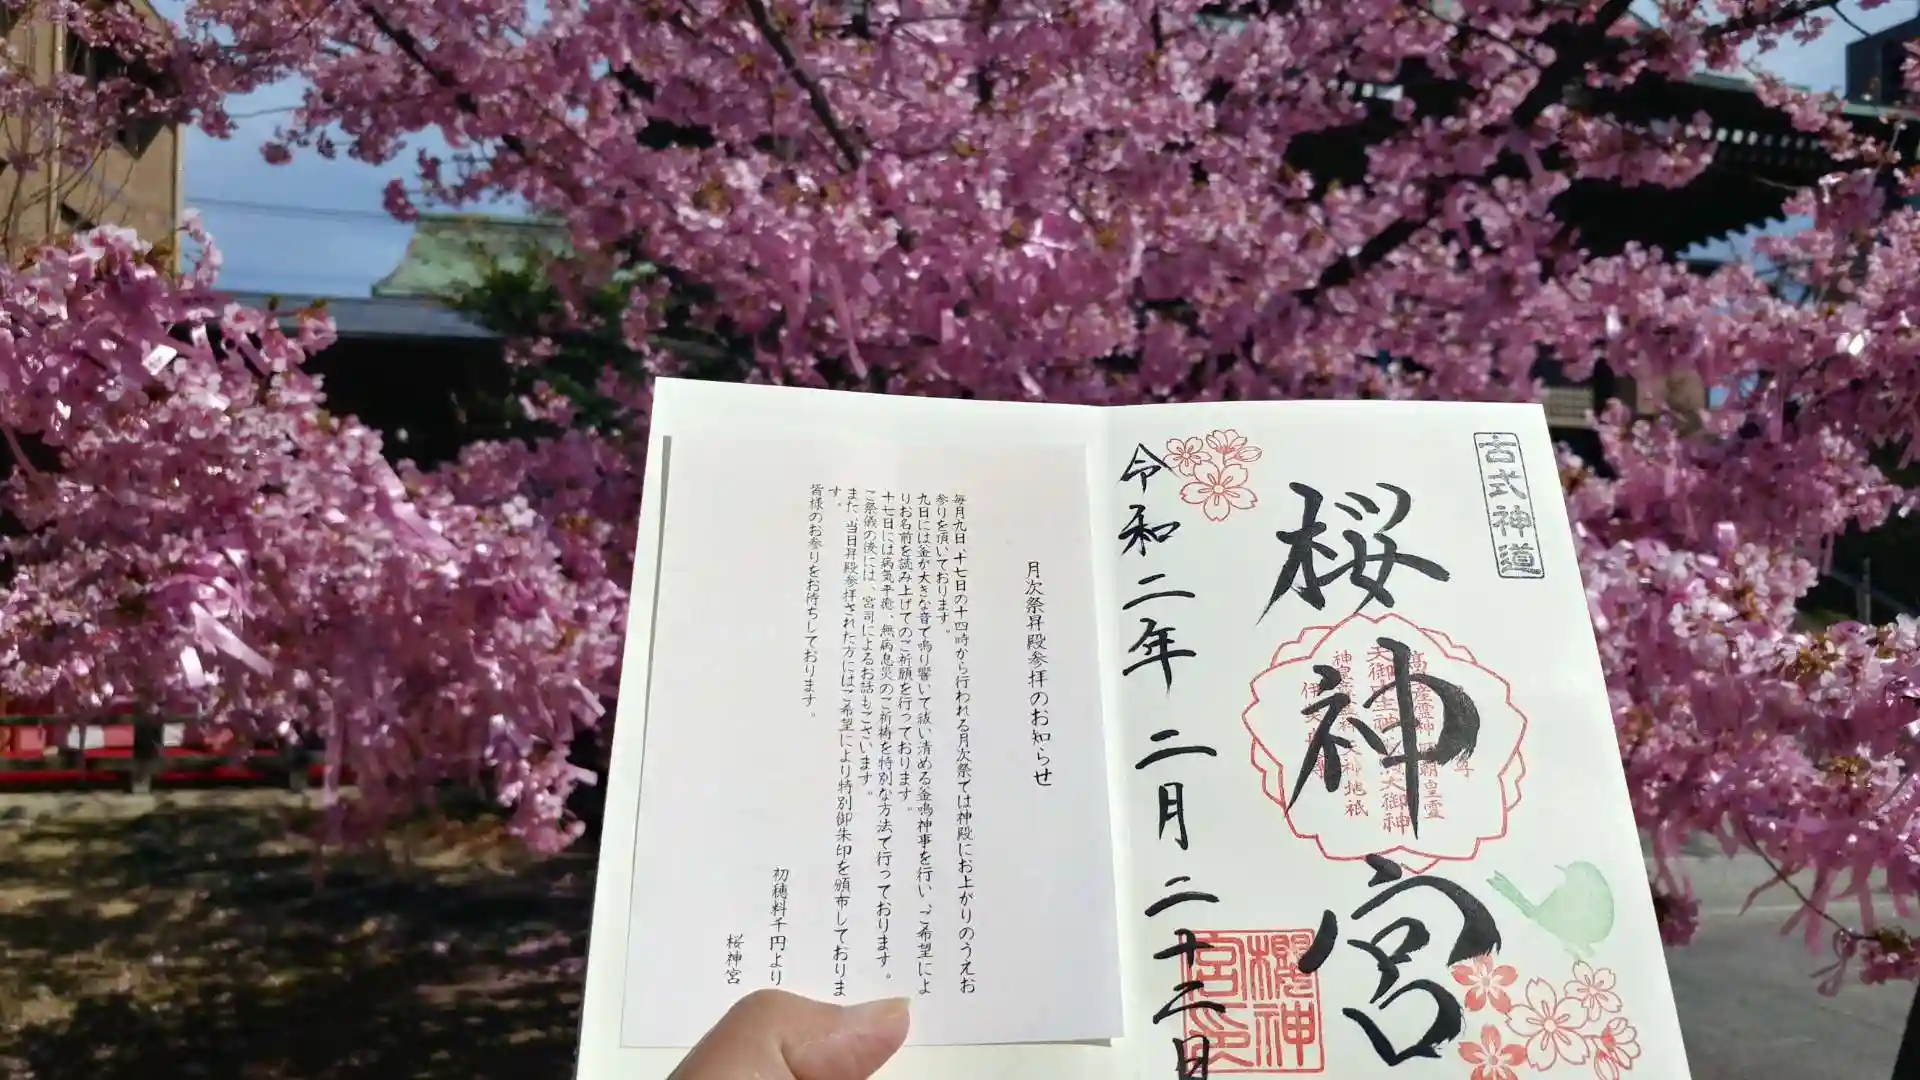 古式神道
桜神宮
令和二年二月二十二日
天御中主神
天照大御神
高
産霊神
皇霊
神皇産霊神
地祇
櫻神
宮
月次祭昇殿参拝のお知らせ
毎月九日 十七日の十四時から行われる月次祭では神殿にお上がりのうえお
参りを頂いております。
九日には釜が大きな音で鳴り響いて祓い清める釜鳴神事を行い、ご希望によ
りお名前を読み上げてのご祈願を行っております。
十七日には病気平癒、無病息災のご祈祷を特別な方法で行っております。
ご祭儀の後には、宮司によるお話もございます。
また、当日昇殿参拝された方にはご希望により特別御朱印を頒布しておりま
す。
皆様のお参りをお待ちしております。
初穂料千円より
桜神宮